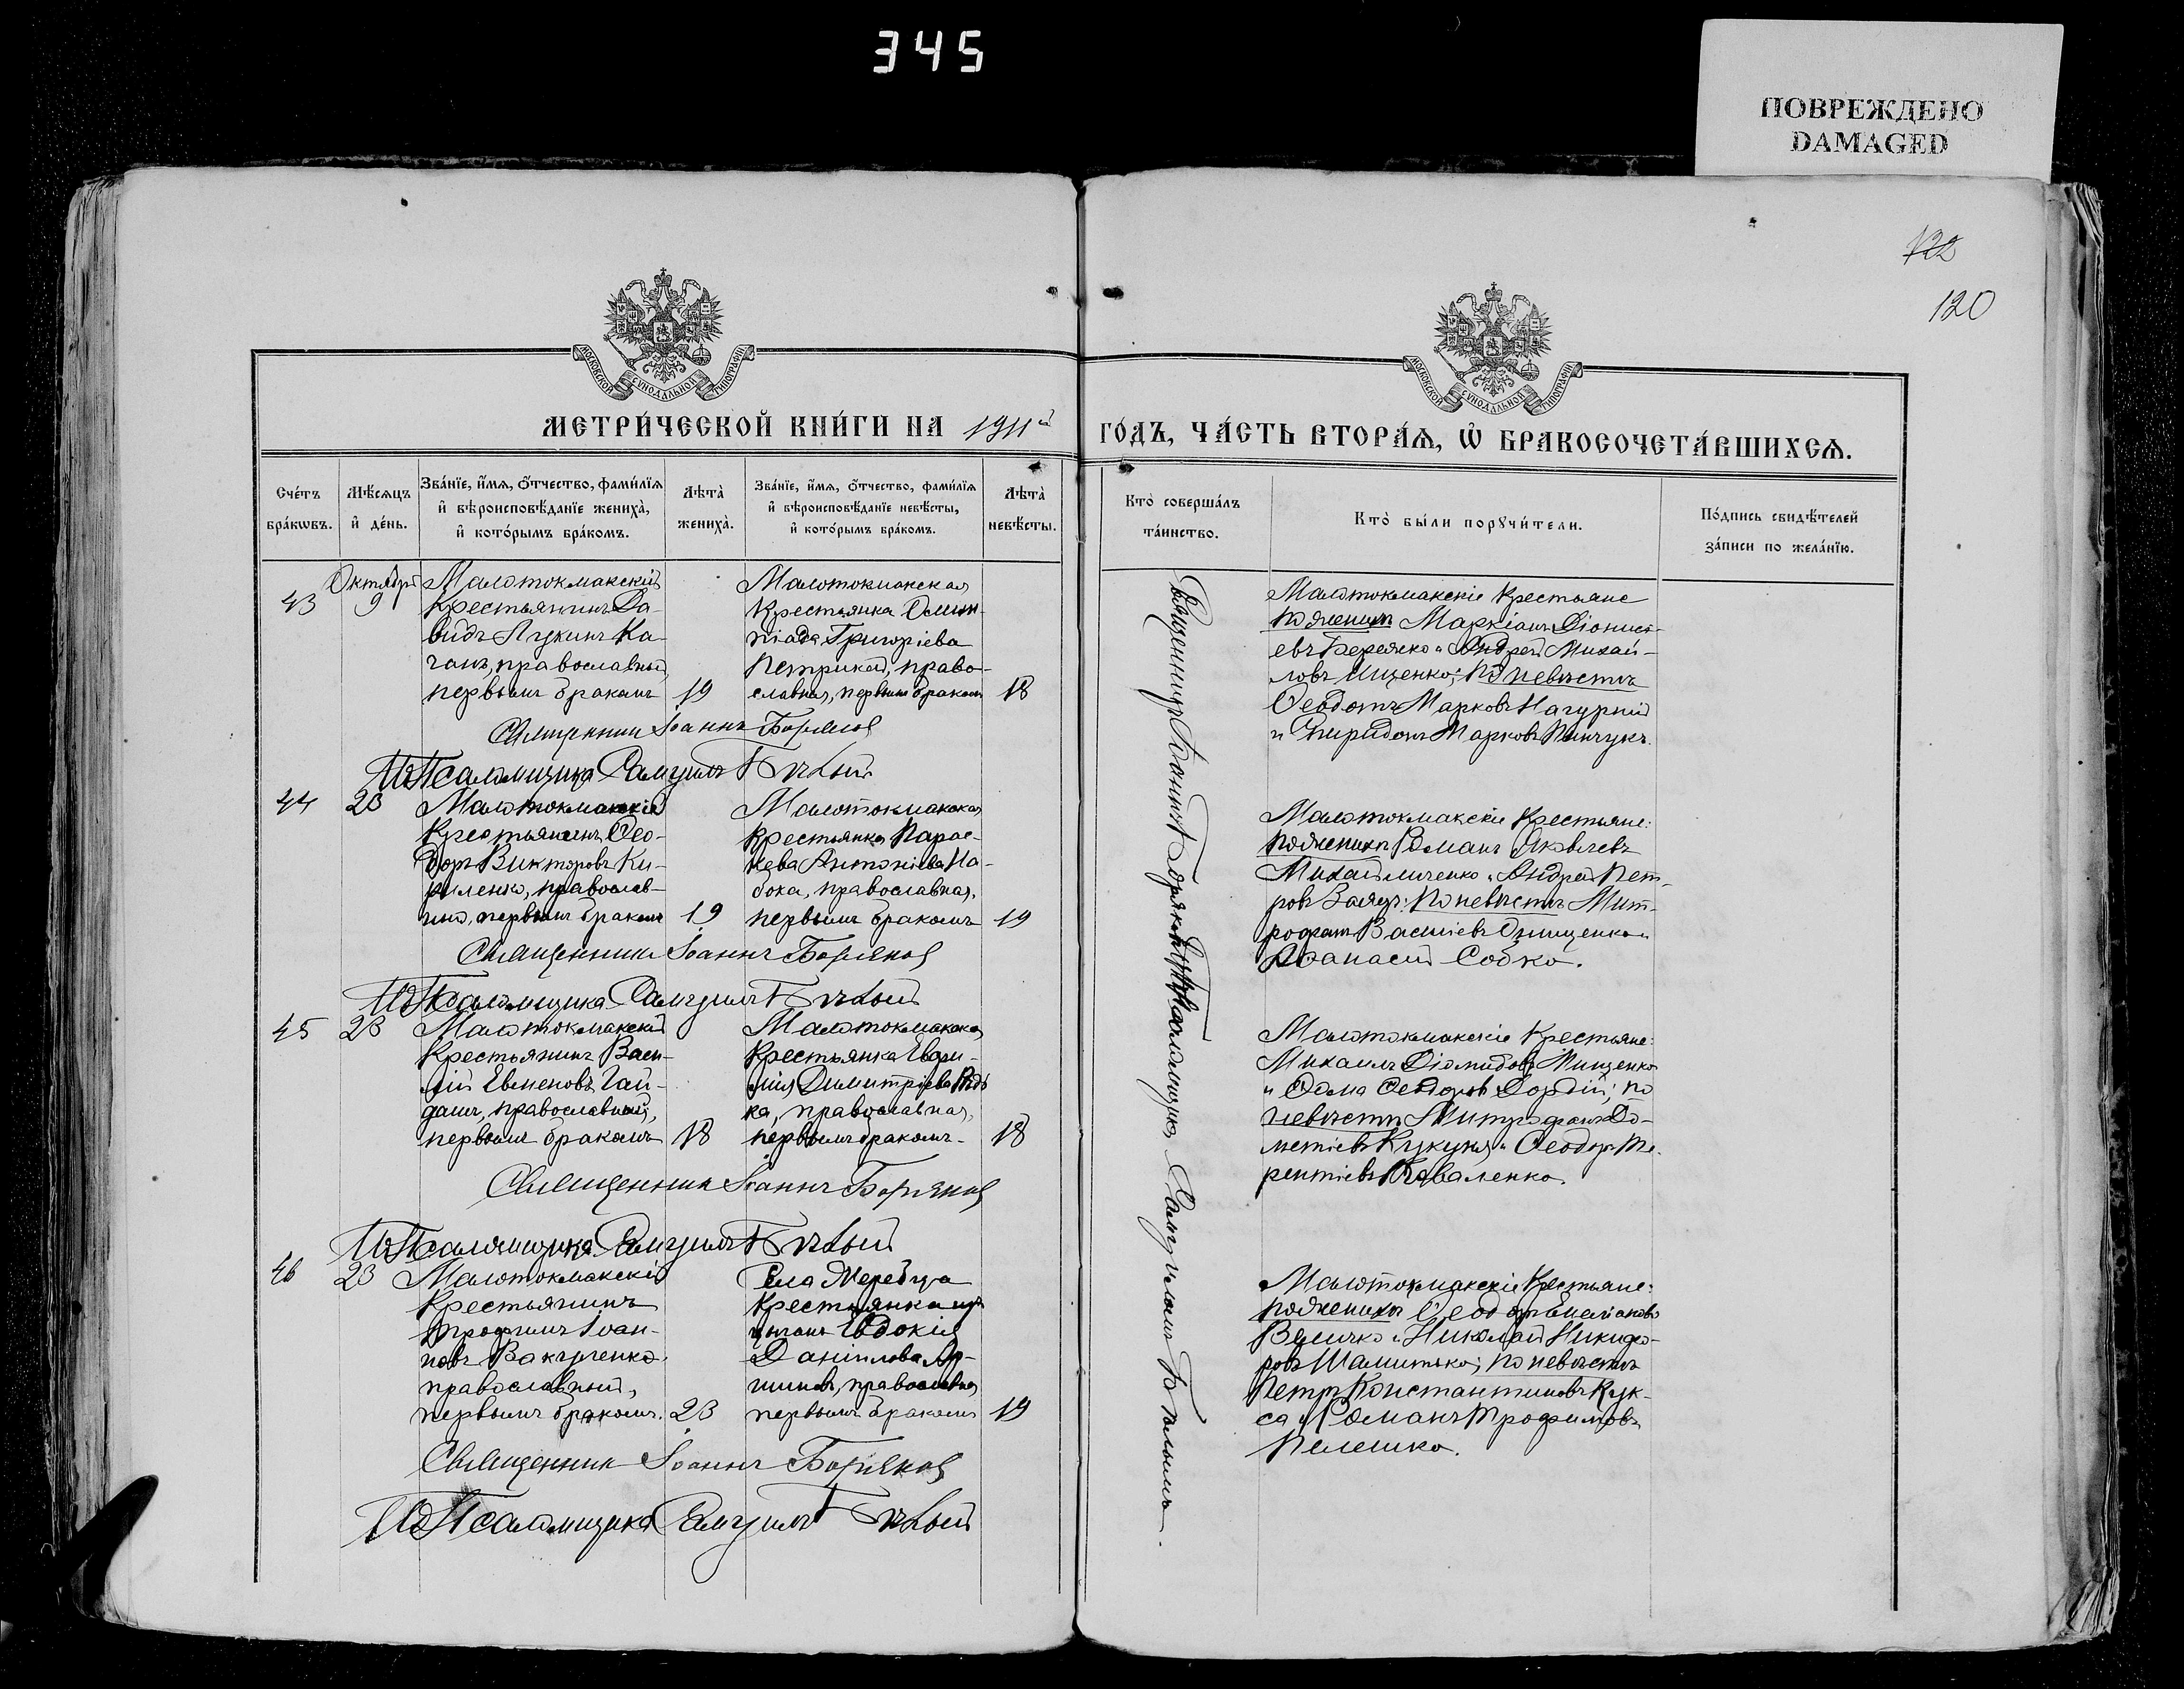 345
ПОВРЕЖДЕНО
DAMAGED
132
120
МОСКОВСКОЙ СУНОДАЛЬНОЙ ТИПОГРАФІИ
МОСКОВСКОЙ СУНОДАЛЬНОЙ ТИПОГРАФІИ
МЕТРИ́ЧЕСКОЙ КНИ́ГИ НА 1911й
ГО́ДЪ, ЧА́СТЬ ВТОРА́Ѧ, Ѡ҆ БРАКОСОЧЕТА́ВШИХСѦ.
Сче́тъ
бра́кѡвъ.
Мѣ́сѧцъ
и҆ де́нь.
Зва́нїе, и҆́мѧ, ѻ҆́тчество, фами́лїѧ
и҆ вѣроисповѣ́данїе жениха̀,
и҆ кото́рымъ бра́комъ.
Лѣта̀
жениха̀.
Зва́нїе, и҆́мѧ, ѻ҆́тчество, фами́лїѧ
и҆ вѣроисповѣ́данїе невѣ́сты,
и҆ кото́рымъ бра́комъ.
Лѣта̀
невѣ́сты.
Кто̀ соверша́лъ
та́инство.
Кто̀ бы́ли порꙋчи́тели.
По́дпись свидѣ́телей
за́писи по жела́нїю.
43
Октября
9
Малотокмакскій
Крестьянинъ Да-
видъ Лукинъ Ка-
чанъ, православный,
первымъ бракомъ
19
Малотокмакская
Крестьянка Олим-
піада Григоріева
Петрикъ, право-
славная, первымъ бракомъ
18
Малотокмакскіе Крестьяне
по женихѣ Маркіанъ Діонисі-
евъ Бережко и Андрей Михай-
ловъ Ищенко; по невѣстѣ
Ѳеодотъ Марковъ Нагурный
и Спиридонъ Марковъ Пинчукъ.
Священникъ Іоаннъ Боряков
ИдПсаломщика Самуилъ Бѣлый
44
23
Малотокмакскій
Крестьянинъ Ѳео-
доръ Викторовъ Ки-
риленко, православ-
ный, первымъ бракомъ
19
Малотокмакская
крестьянка Парас-
кева Антоніева На-
бока, православная,
первымъ бракомъ
19
Малотокмакскіе Крестьяне:
по женихѣ Романъ Яковлевъ
Михайличенко и Андрей Пет-
ровъ Заяцъ; по невѣстѣ Мит-
рофанъ Василіевъ Онищенко и
Аѳанасій Собко.
Священникъ Іоаннъ Боряков
ИдПсаломщика Самуилъ Бѣлый
45
23
Малотокмакскій
Крестьянинъ Васи-
лій Евменовъ Гай-
дашъ, православный,
первымъ бракомъ
18
Малотокмакская
Крестьянка Евфи-
мія Димитріева
ка, православная,
первымъ бракомъ
18
Малотокмакскіе Крестьяне:
Михаилъ Діомидовъ Ищенко
и Ѳома Ѳеодоровъ Дордій; по
невѣстѣ Митрофанъ До-
метіевъ Кукуня и Ѳеодоръ Те-
рентіевъ Коваленко.
Священникъ Іоаннъ Боряков
ИдПсаломщика Самуилъ Бѣлый
46
23
Малотокмакскій
Крестьянинъ
Трофимъ Іоан-
новъ Вакуленко,
православный,
первымъ бракомъ.
23
Села Жеребца
Крестьянка изъ
цыганъ Евдокія
Даніилова Ар-
православная
первымъ бракомъ
19
Малотокмакскіе Крестьяне:
по женихѣ Ѳеодоръ Емеліановъ
Величко и Николай Никифо-
ровъ Шамитько; по невѣстѣ
Петръ Константиновъ Кук-
са и Романъ Трофимовъ
Пелешко.
Священникъ Іоаннъ Боряков
ИдПсаломщика Самуилъ Бѣлый
Священникъ Іоаннъ Боряковъ съ Псаломщикомъ Самуиломъ Бѣлымъ.